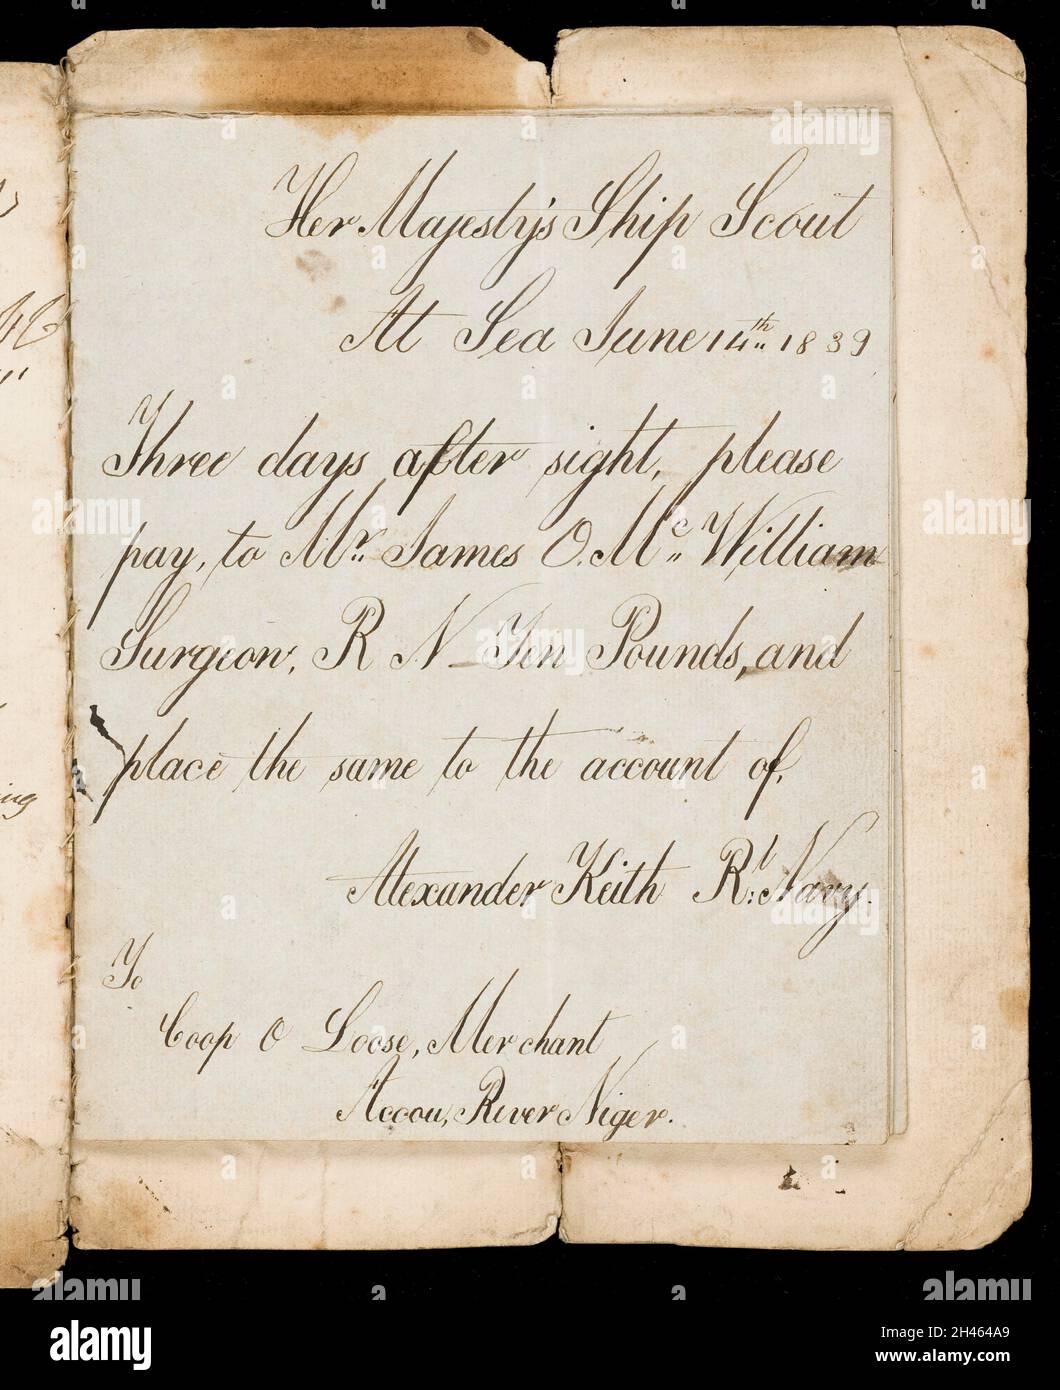 Her Majesty's Ship Scout
At Sea June 14th 1839
Three days after sight, please
pay, to Mr. James O. Mc. William
Surgeon, R N Ten Pounds, and
place the same to the account of,
Alexander Keith Rl. Navy.
To
Coop O Loose, Merchant
Accou, River Niger.
ing
alamy
Image ID: 2H464A9
www.alamy.com